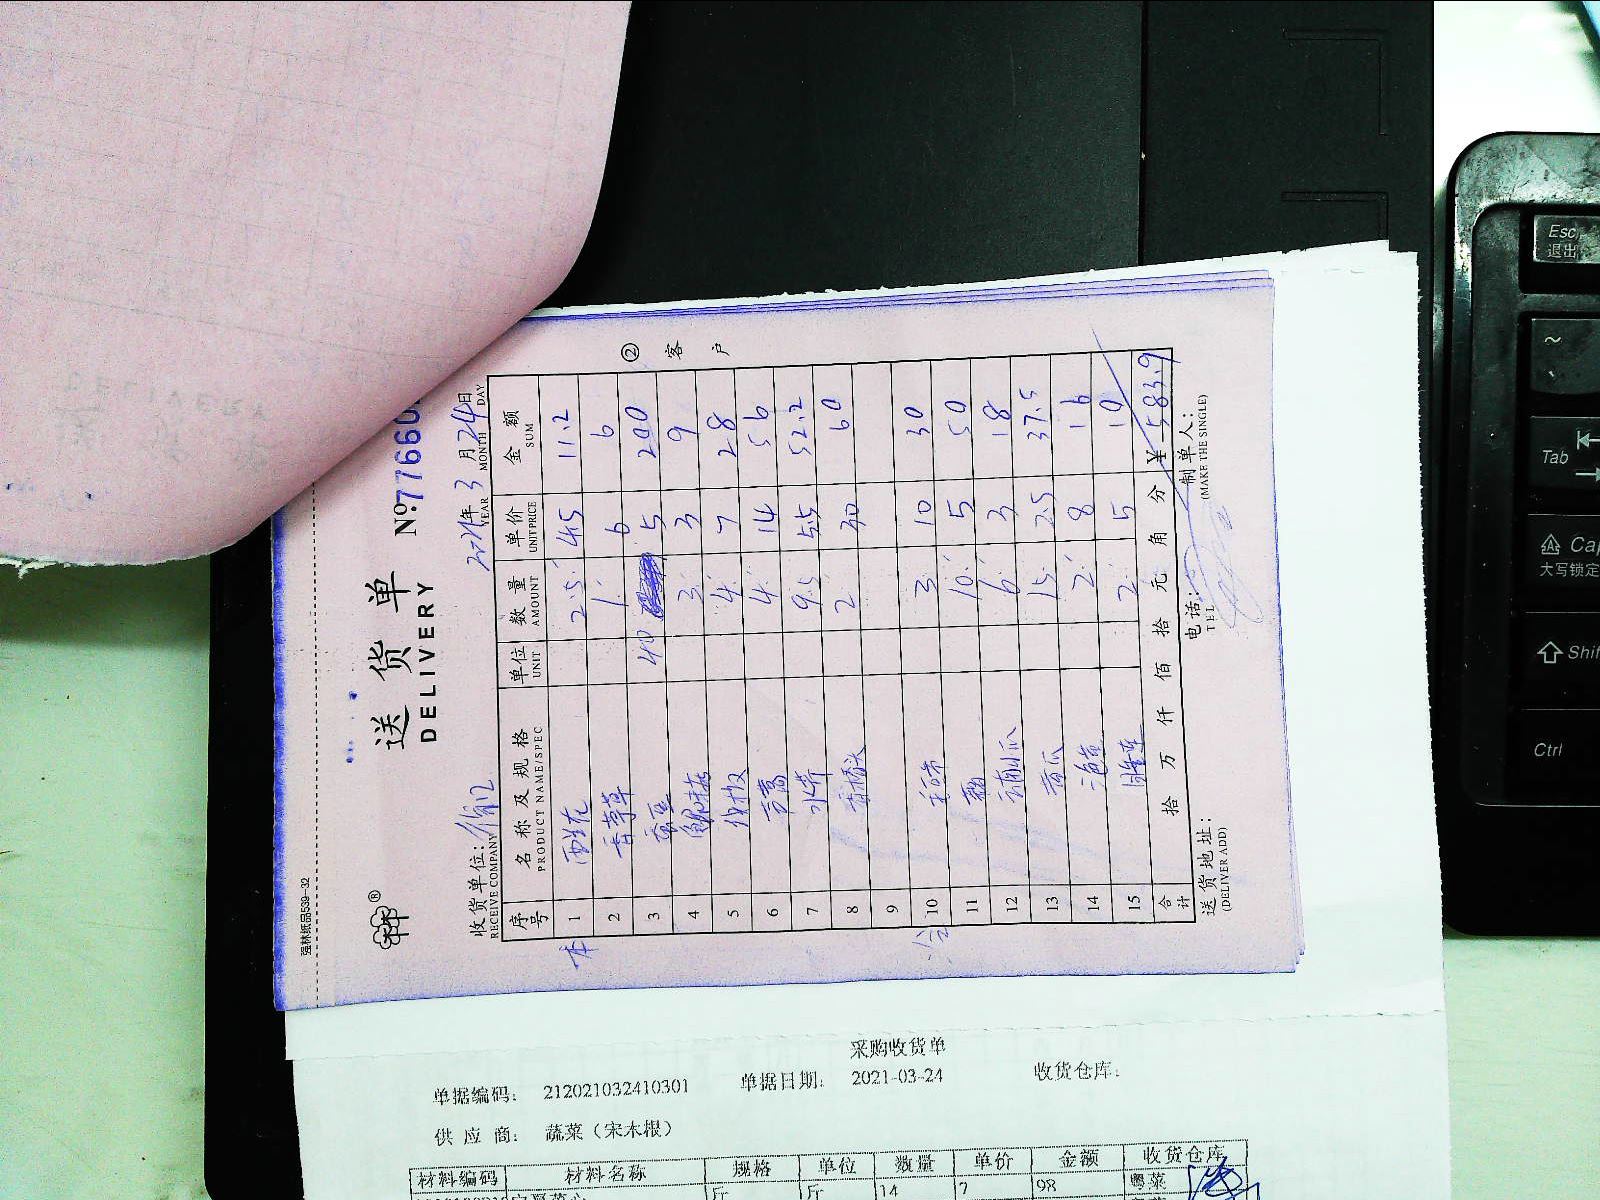 强林纸品539-32
送货单
DELIVERY
№77660
收货单位:
RECEIVE COMPANY
2021年3月24日
YEAR MONTH DAY
② 客户
序号 名称及规格 单位 数量 单价 金额
PRODUCT NAME/SPEC UNIT AMOUNT UNIT PRICE SUM
1 西兰花 2.5 4.5 11.2
2 香草 1 6 6
3 蚕豆 40 5 200
4 3 3 9
5 4 7 28
6 茼蒿 4 14 56
7 水芹 9.5 5.5 52.2
8 2 30 60
9
10 3 10 30
11 10 5 50
12 6 3 18
13 黄瓜 15 2.5 37.5
14 2 8 16
15 2 5 10
合计 拾 万 仟 佰 拾 元 角 分 ¥ 583.9
送货地址:
(DELIVER ADD)
电话:
TEL
制单人:
(MAKE THE SINGLE)
采购收货单
单据编码: 212021032410301 单据日期: 2021-03-24 收货仓库:
供应商: 蔬菜(宋木根)
材料编码 材料名称 规格 单位 数量 单价 金额 收货仓库
斤 斤 14 7 98 粤菜
Esc
退出
~
Tab
Cap
大写锁定
Shif
Ctrl